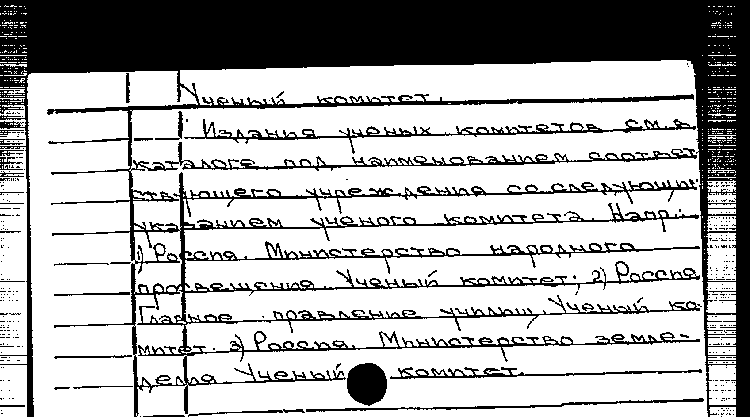 Ученый комитет.
Издания ученых комитетов см. в
каталоге под наименованием соответ
ствующего учреждения со следующим
указанием ученого комитета. Напр.:
1) Россия. Министерство народного
просвещения. Ученый комитет; 2) Россия
Главное правление училищ. Ученый ко
митет. 3) Россия. Министерство земле-
делия Ученый комитет.